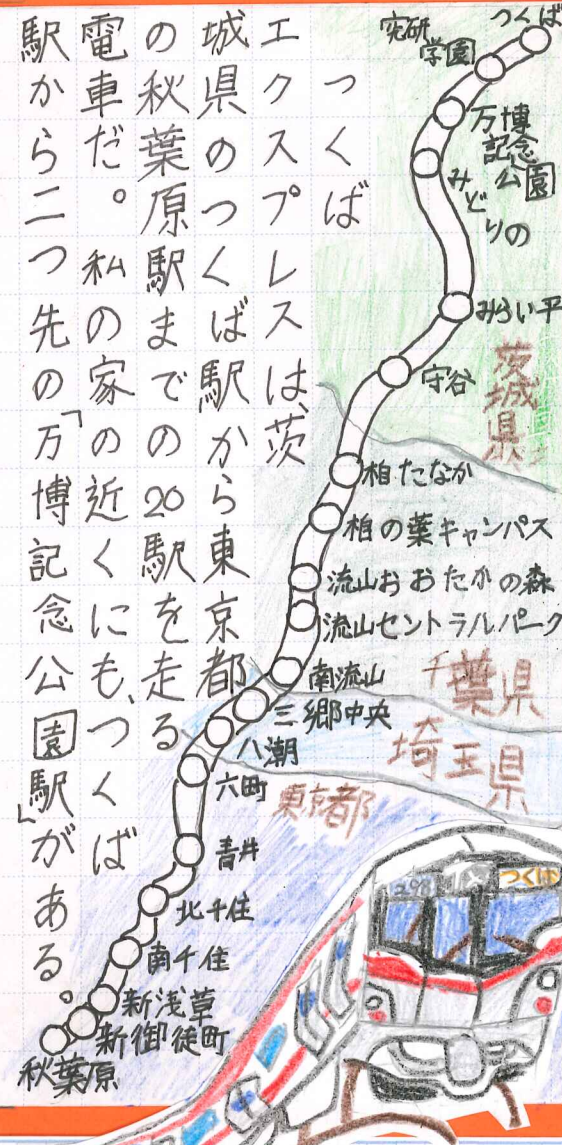 つくば
エクスプレスは、茨
城県のつくば駅から東京都
の秋葉原駅までの20駅を走る
電車だ。私の家の近くにも、つくば
駅から二つ先の「万博記念公園駅」がある。
つくば
究研
学園
万博
記念
公園
みどりの
みらい平
守谷
茨城県
柏たなか
柏の葉キャンパス
流山おおたかの森
流山セントラルパーク
南流山
千葉県
三郷中央
八潮
埼玉県
六町
東京都
青井
北千住
南千住
新浅草
新御徒町
秋葉原
つくば